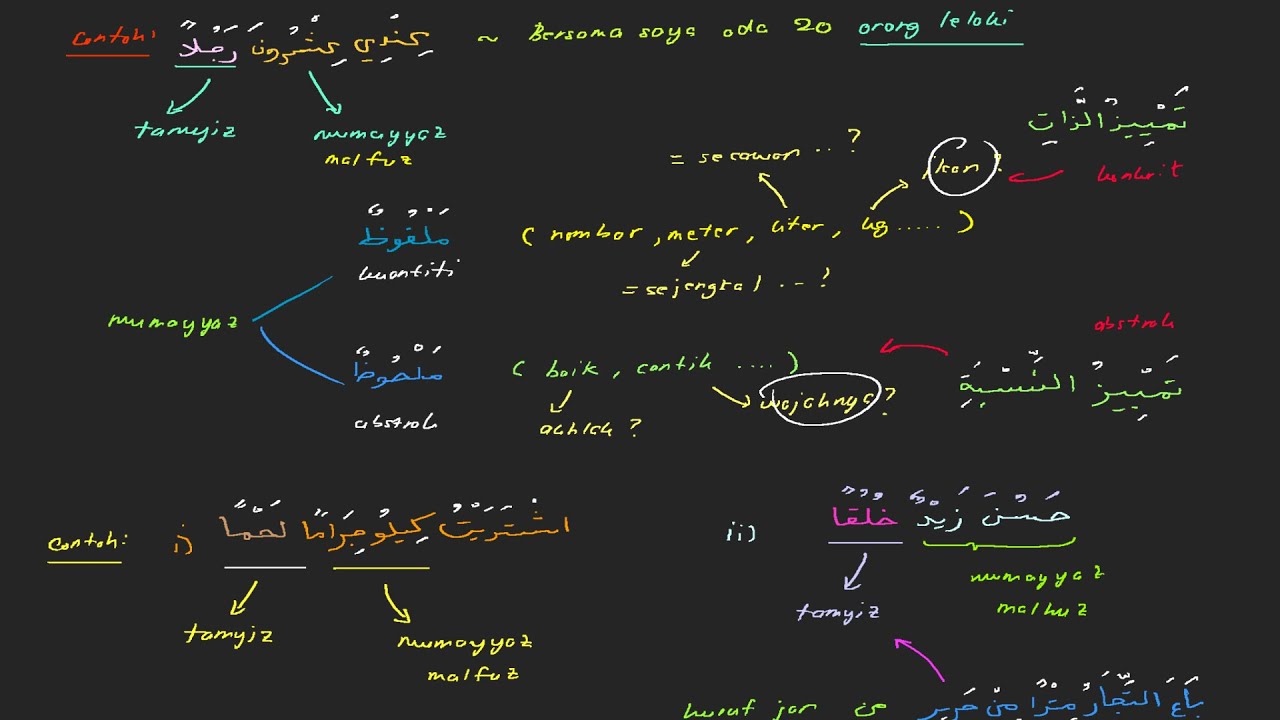 Contoh: عِنْدِي عِشْرُونَ رَجُلًا ~ Bersama saya ada 20 orang lelaki
tamyiz
mumayyaz
malfuz
تَمْيِيزُ الذَّاتِ
konkrit
= secawan ..?
ikan?
مَلْفُوظٌ
kuantiti
( nombor, meter, liter, kg ..... )
= sejengkal ...?
mumayyaz
مَلْحُوظٌ
abstrak
( baik, cantik .... )
akhlak?
wajahnya?
abstrak
تَمْيِيزُ النِّسْبَةِ
Contoh: i) اشْتَرَيْتُ كِيلُو جِرَامًا لَحْمًا
tamyiz
mumayyaz
malfuz
ii) حَسُنَ زَيْدٌ خُلُقًا
tamyiz
mumayyaz
malhuz
huruf jar مِنْ
بَاعَ التُّجَّارُ مِتْرًا مِنْ حَرِيرٍ